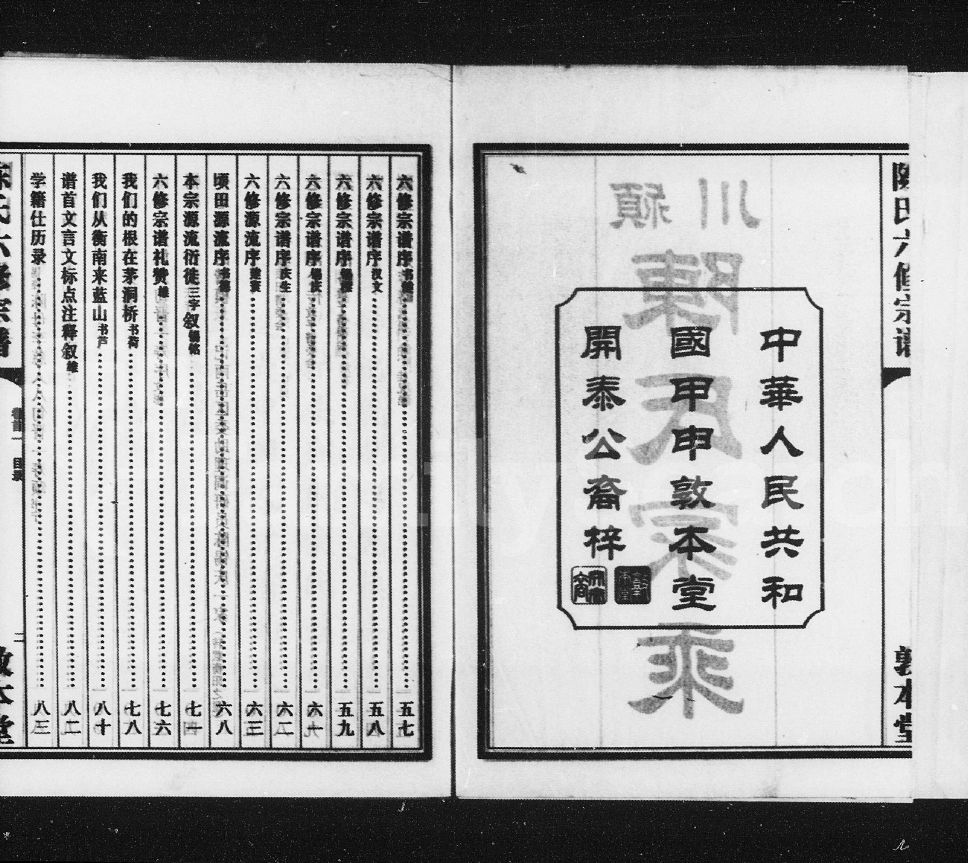 中華人民共和
國甲申敦本堂
開泰公裔梓
敦本堂
六修宗谱序
六修宗谱序 汉文 五八
六修宗谱序 五九
六修宗谱序
六修宗谱序 庆生 六二
六修源流序 六三
顷田源流序 六八
本宗源流衍徒三字叙 锡铭 七一
六修宗谱礼赞 雄 七六
我们的根在茅洞桥 书荷 七八
我们从衡南来蓝山 书芦 八十
谱首文言文标点注释叙 雄 八二
学籍仕历录 八三
卷首一 目录
二